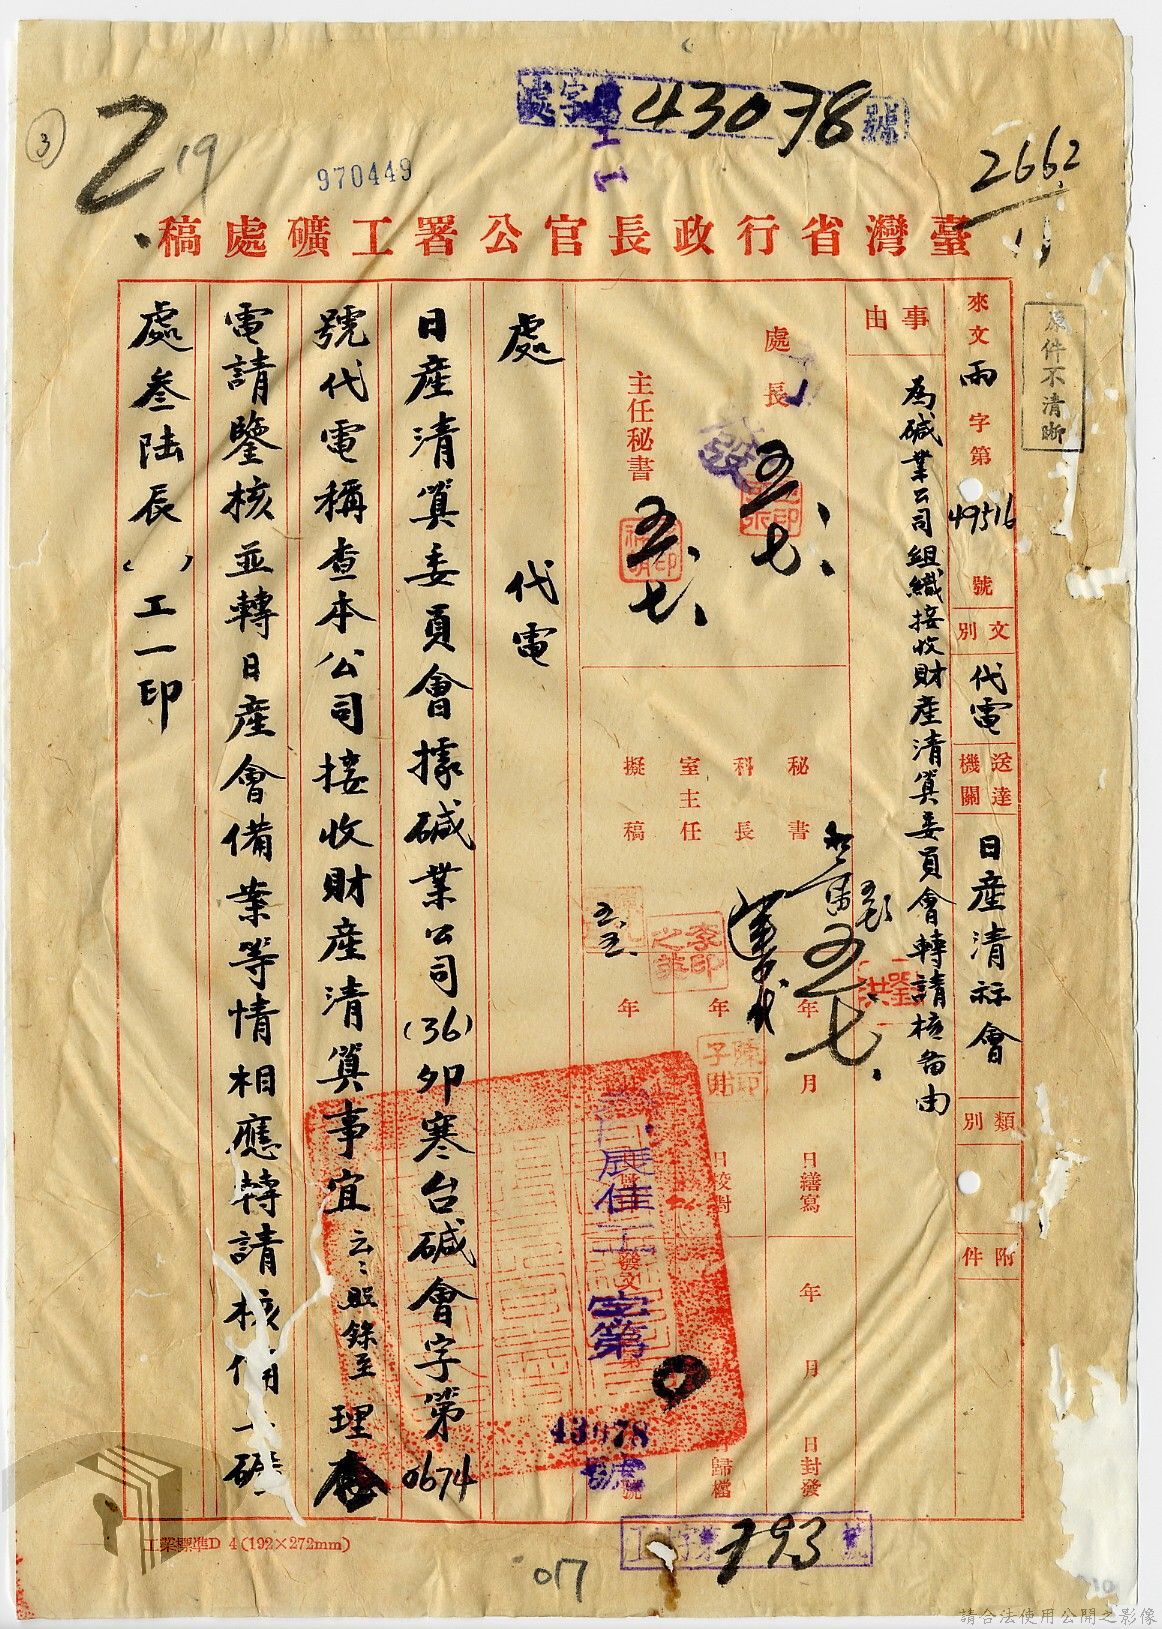 處字第43078號
工1
2662
3
Z19
970449
臺灣省行政長官公署工礦處稿
原件不清晰
來文雨字第49516號
文別 代電
送達機關 日產清祘會
類別
附件
事由
為碱業公司組織接收財產清算委員會轉請核备由
處長 五、七、
發
主任秘書 五、七、
秘書 五、七、
科長
室主任
擬稿 五、五、
李印之
年 月 日繕寫
年 月 日封發
日校對
日歸檔
發文
佳工字第43078號
處 代電
日產清算委員會據碱業公司(36)卯寒台碱會字第0674
號代電稱查本公司接收財產清算事宜云云照錄至理處
電請鑒核並轉日產會備案等情相應轉請核備工礦
處叁陸辰( )工一印
工業標準D 4 (192×272mm)
工 字第793號
017
請合法使用公開之影像